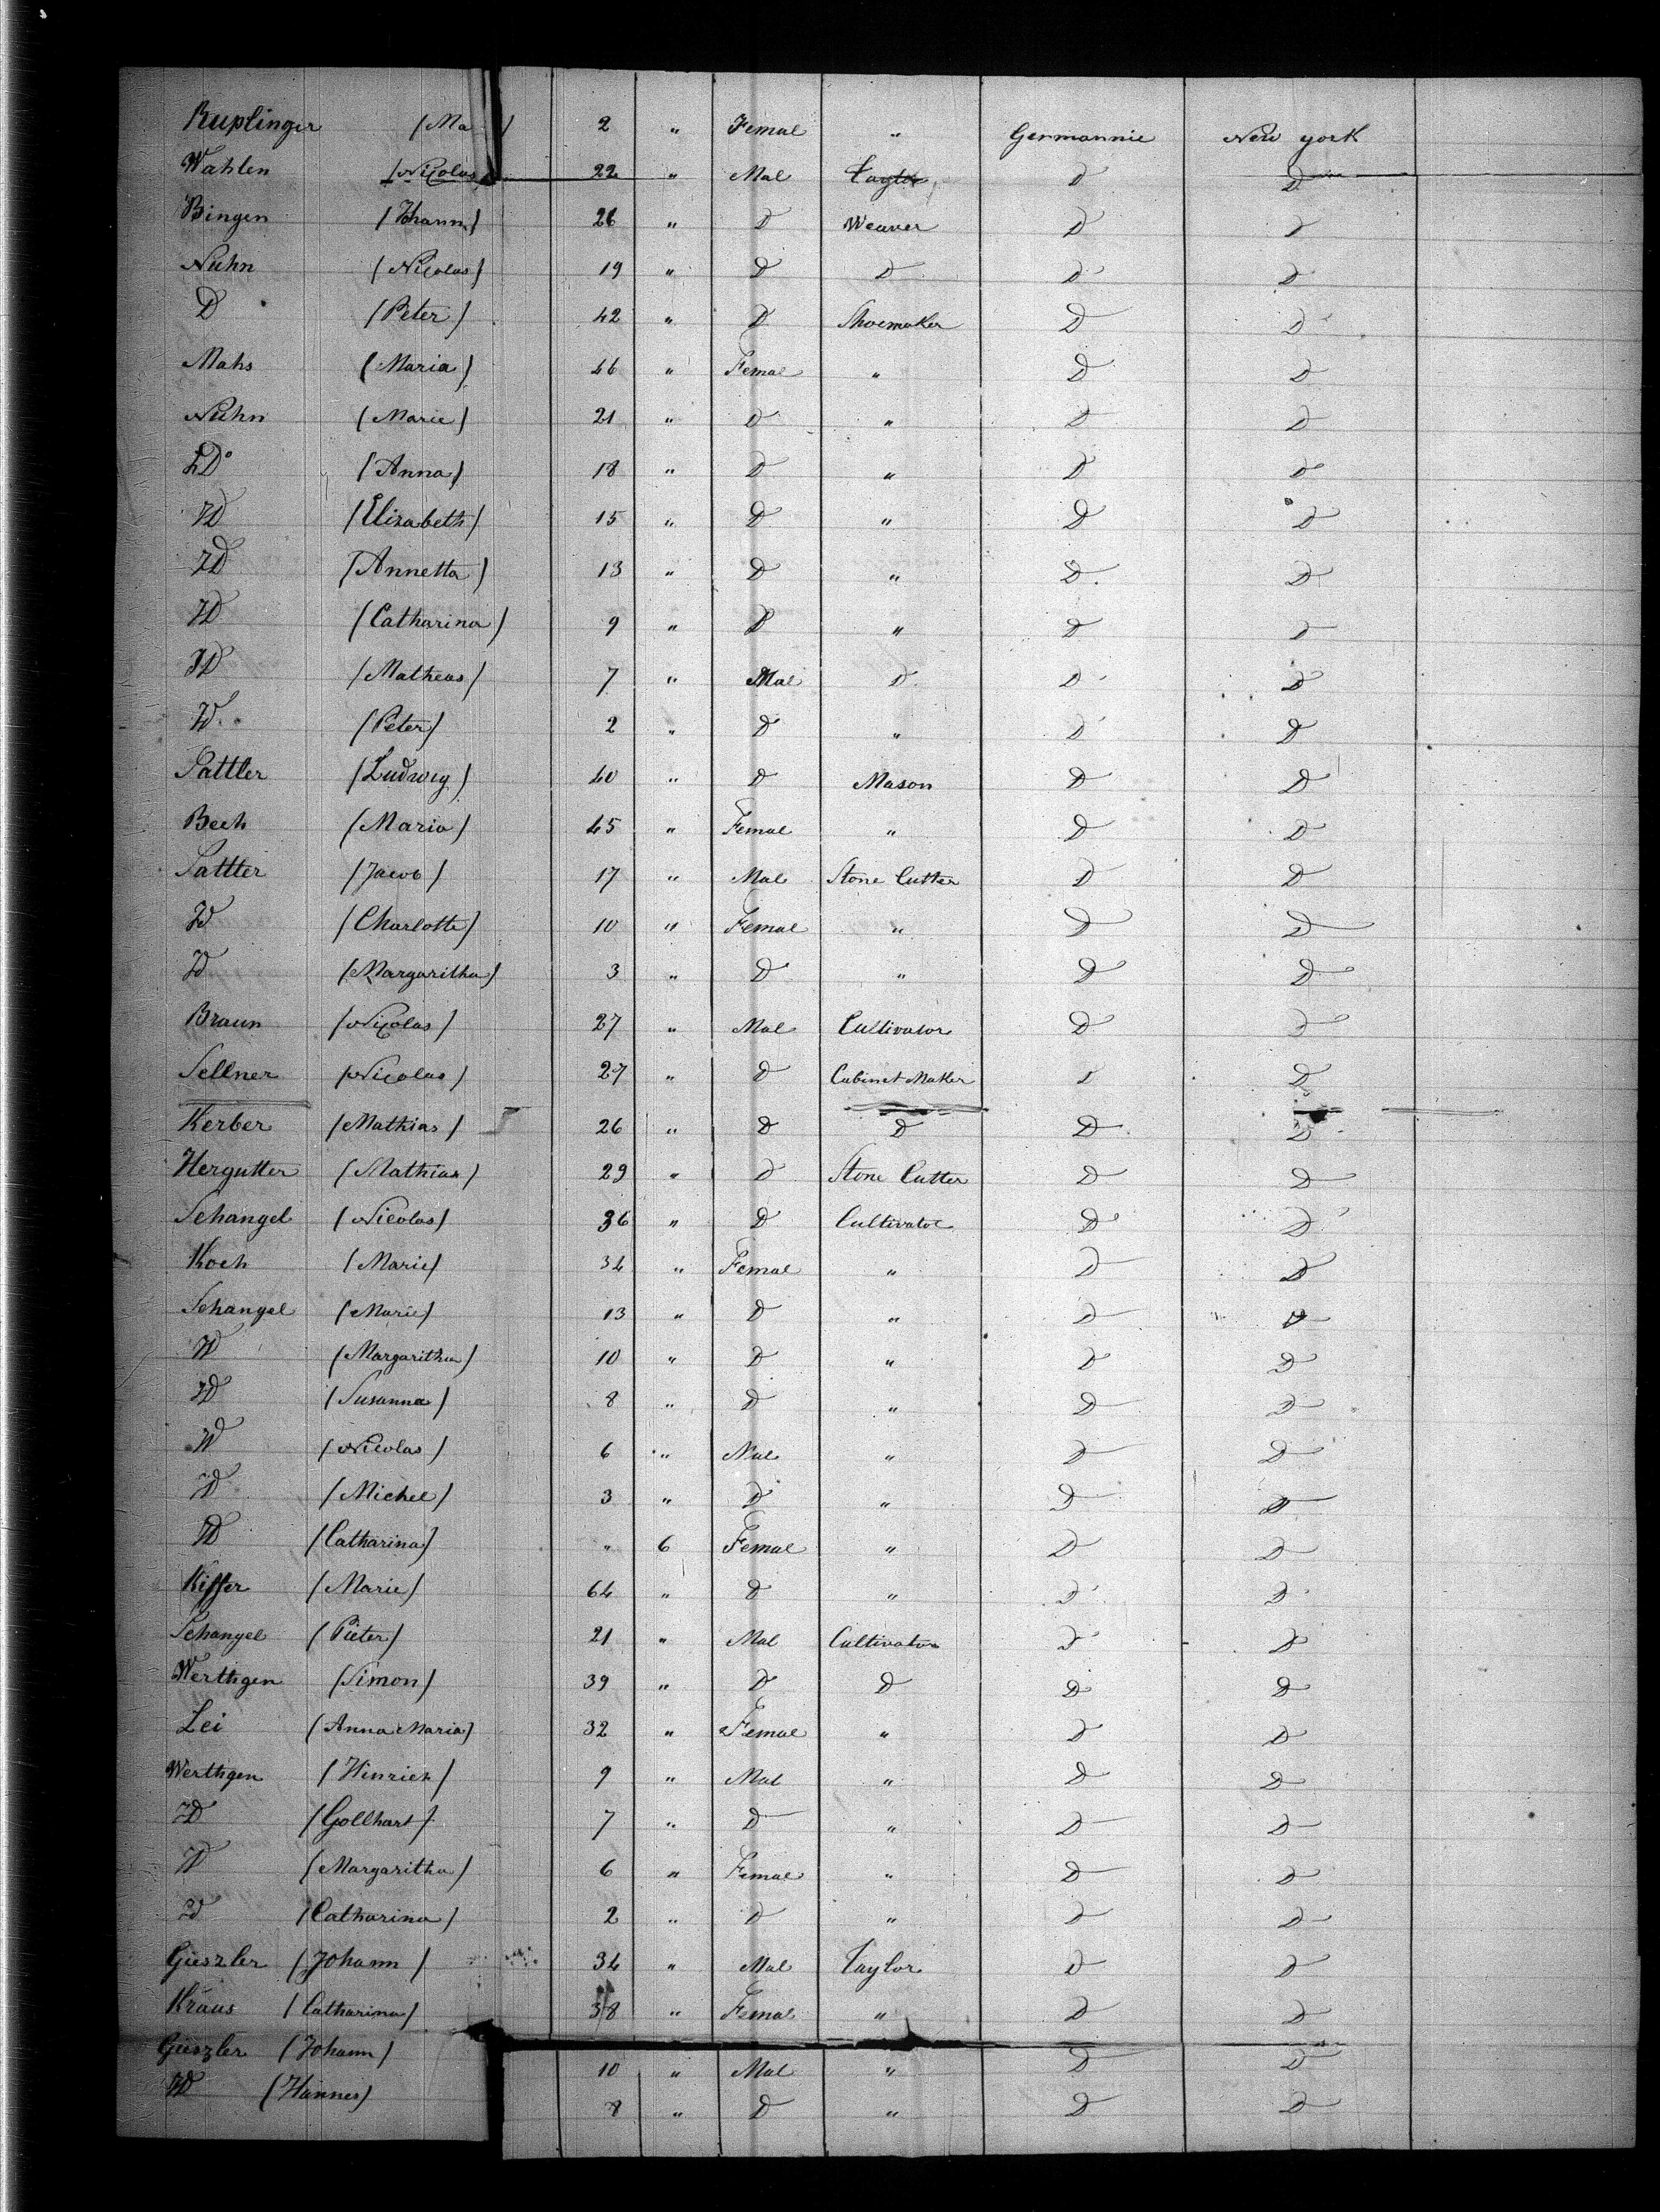 Ruplinger (Ma ) 2 " Femal " Germannie New york
Wahlen (Nicolas 22 " Mal Taylor D D
Bingen (Johann) 26 " D Weaver D D
Nuhn (Nicolas) 19 " D D D D
D (Peter) 42 " D Shoemaker D D
Mahs (Maria) 46 " Femal " D D
Nuhn (Marie) 21 " D " D D
ID° (Anna) 18 " D " D D
ID (Elizabeth) 15 " D " D D
ID (Annetta) 13 " D " D D
ID (Catharina) 9 " D " D D
ID (Matheas) 7 " Mal D D D
ID (Peter) 2 " D " D D
Sattler (Ludwig) 40 " D Mason D D
Bech (Maria) 45 " Femal " D D
Sattler (Jacob) 17 " Mal Stone Cutter D D
ID (Charlotte) 10 " Femal " D D
ID (Margaritha) 3 " D " D D
Braun (Nicolas) 27 " Mal Cultivator D D
Sellner (Nicolas) 27 " D Cabinet Maker D D
Kerber (Mathias) 26 " D D D D
Hergutter (Mathias) 29 " D Stone Cutter D D
Schangel (Nicolas) 36 " D Cultivator D D
Koch (Marie) 34 " Femal " D D
Schangel (Marie) 13 " D " D D
ID (Margaritha) 10 " D " D D
ID (Susanna) 8 " D " D D
ID (Nicolas) 6 " Mal " D D
ID (Michel) 3 " D " D D
ID (Catharina) " 6 Femal " D D
Kiffer (Marie) 64 " D " D D
Schangel (Pieter) 21 " Mal Cultivator D D
Werthgen (Simon) 39 " D D D D
Lei (Anna Maria) 32 " Femal " D D
Werthgen (Hinrich) 9 " Mal " D D
ID (Gollhart) 7 " D " D D
ID (Margaritha) 6 " Femal " D D
ID (Catharina) 2 " D " D D
Gieszler (Johann) 34 " Mal Taylor D D
Kraus (Catharina) 38 " Femal " D D
Gieszler (Johann) 10 " Mal " D D
ID (Hannes) 8 " D " D D